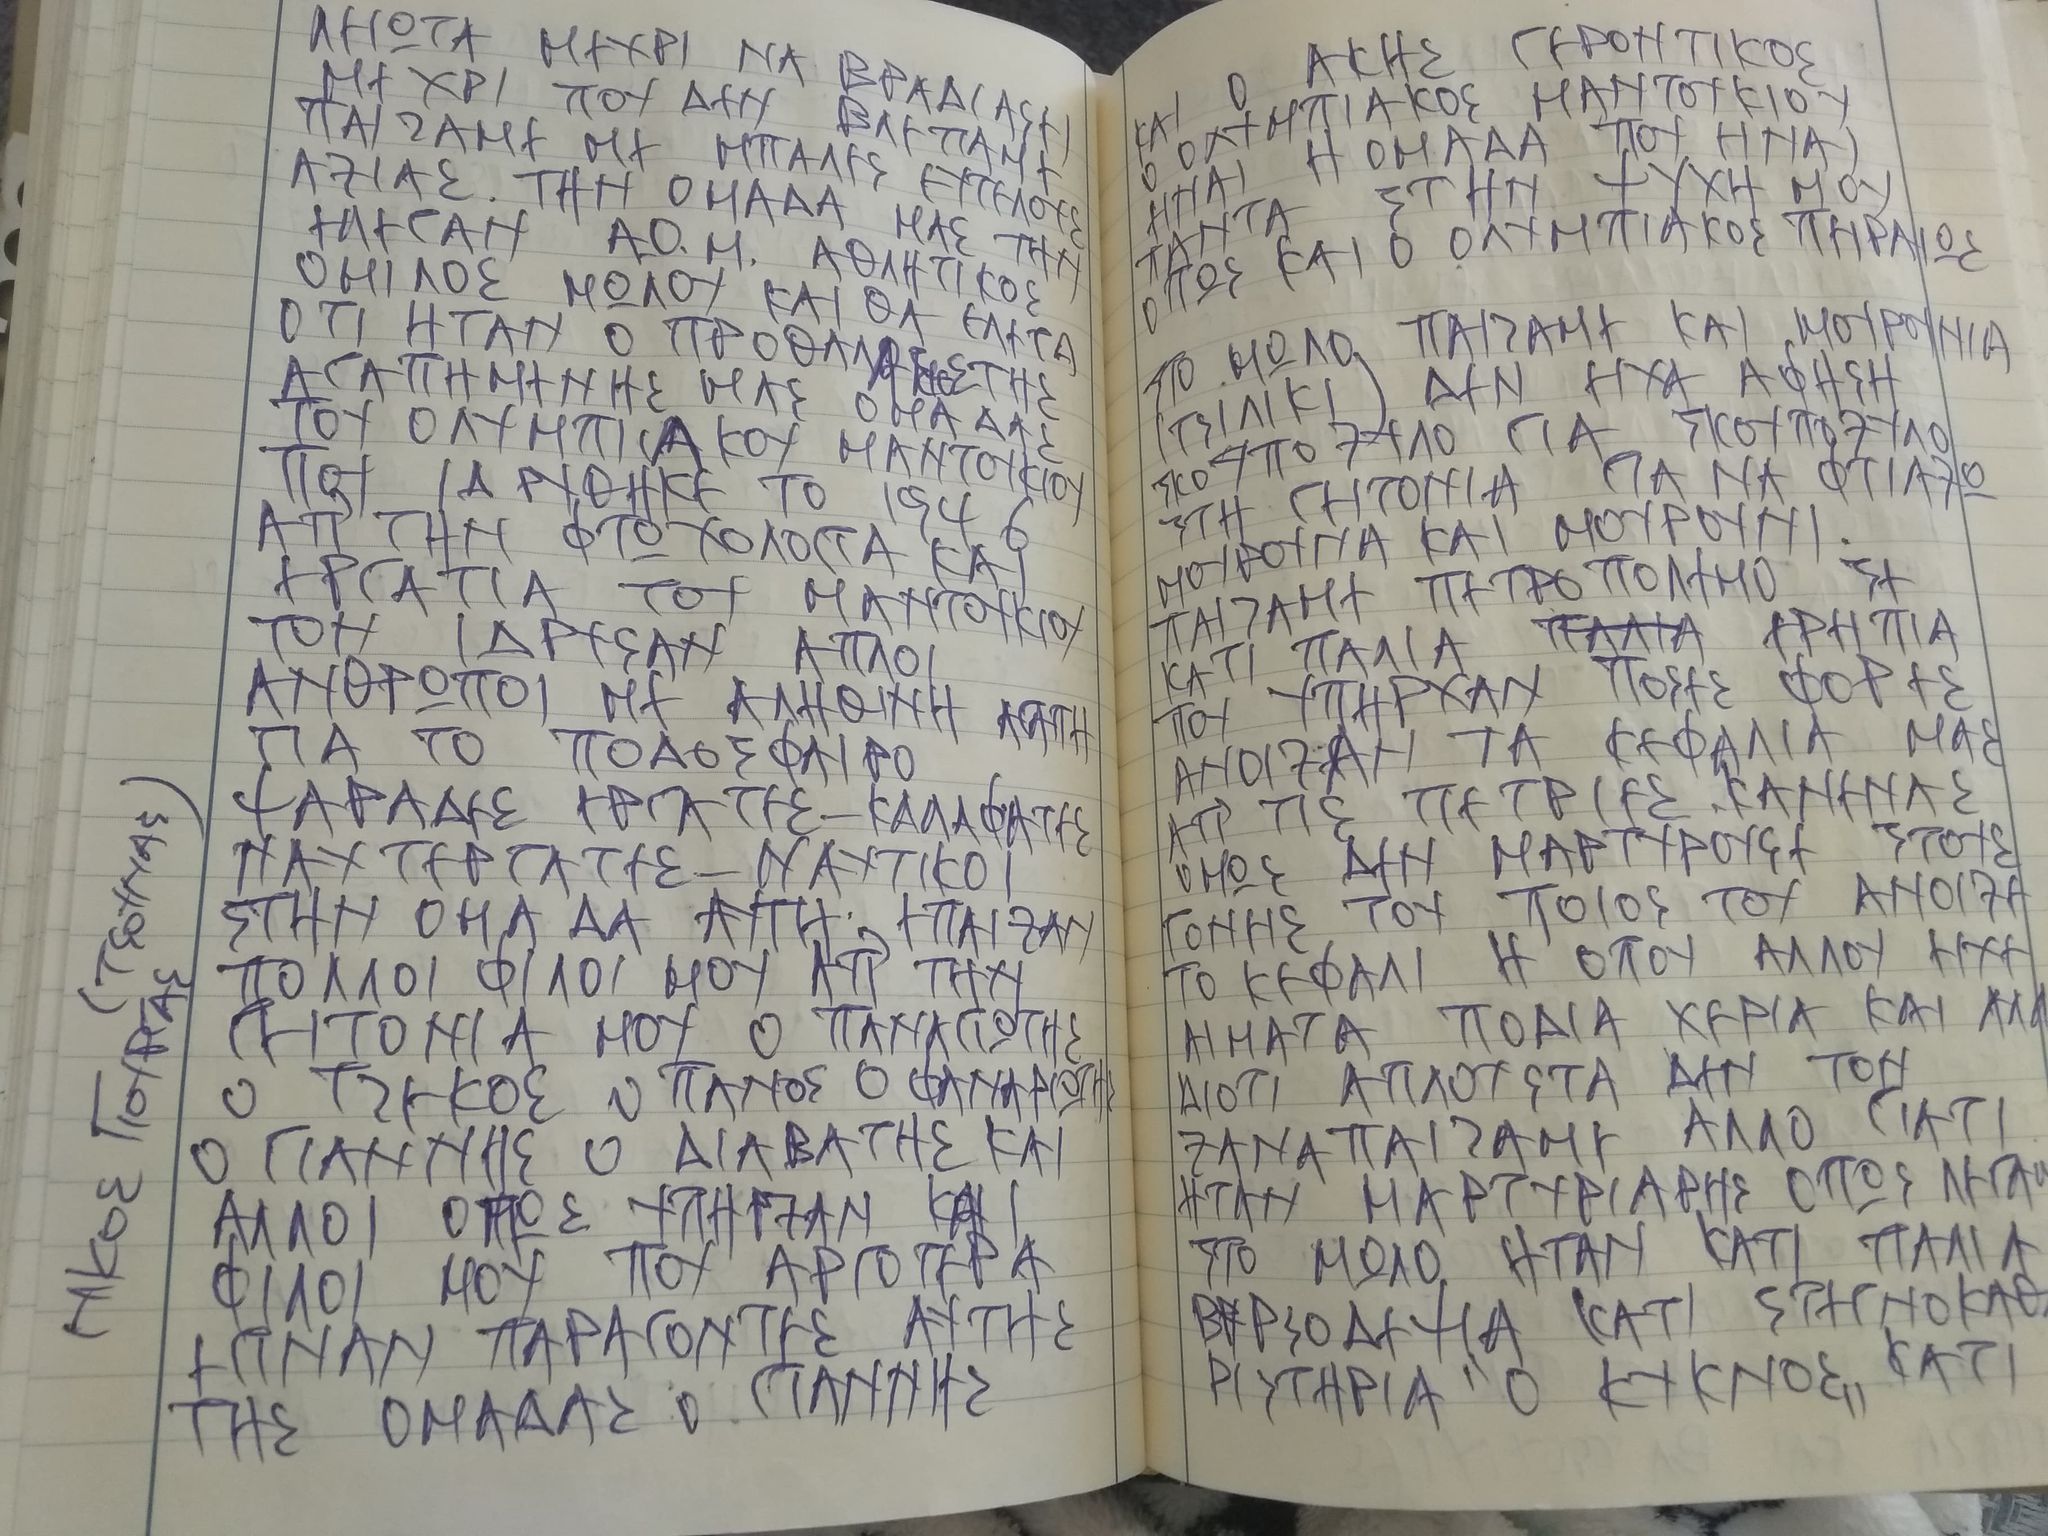 ΛΗΩΤΑ ΜΕΧΡΙ ΝΑ ΒΡΑΔΙΑΣΕΙ
ΜΕΧΡΙ ΠΟΥ ΔΕΝ ΒΛΕΠΑΜΕ
ΠΑΙΖΑΜΕ ΜΕ ΜΠΑΛΕΣ ΕΥΤΕΛΟΥΣ
ΑΞΙΑΣ. ΤΗΝ ΟΜΑΔΑ ΜΑΣ ΤΗΝ
ΕΛΕΓΑΝ Α.Ο.Μ. ΑΘΛΗΤΙΚΟΣ
ΟΜΙΛΟΣ ΜΩΛΟΥ ΚΑΙ ΘΑ ΕΛΕΓΑ
ΟΤΙ ΗΤΑΝ Ο ΠΡΟΘΑΛΑΜΟΣ ΤΗΣ
ΑΓΑΠΗΜΕΝΗΣ ΜΑΣ ΟΜΑΔΑΣ
ΤΟΥ ΟΛΥΜΠΙΑΚΟΥ ΜΑΝΤΟΥΚΙΟΥ
ΠΟΥ ΙΔΡΥΘΗΚΕ ΤΟ 1946
ΑΠ ΤΗΝ ΦΤΩΧΟΛΟΓΙΑ ΚΑΙ
ΕΡΓΑΤΙΑ ΤΟΥ ΜΑΝΤΟΥΚΙΟΥ
ΤΟΝ ΙΔΡΥΣΑΝ ΑΠΛΟΙ
ΑΝΘΡΩΠΟΙ ΜΕ ΑΛΗΘΙΝΗ ΑΓΑΠΗ
ΓΙΑ ΤΟ ΠΟΔΟΣΦΑΙΡΟ
ΨΑΡΑΔΕΣ ΕΡΓΑΤΕΣ - ΚΑΛΑΦΑΤΕΣ
ΝΑΥΤΕΡΓΑΤΕΣ - ΝΑΥΤΙΚΟΙ
ΣΤΗΝ ΟΜΑΔΑ ΑΥΤΗ ΕΠΑΙΖΑΝ
ΠΟΛΛΟΙ ΦΙΛΟΙ ΜΟΥ ΑΠ ΤΗΝ
ΓΕΙΤΟΝΙΑ ΜΟΥ Ο ΠΑΝΑΓΙΩΤΗΣ
Ο ΤΖΕΚΟΣ Ο ΠΑΝΟΣ Ο ΦΑΝΑΡΙΩΤΗΣ
Ο ΓΙΑΝΝΗΣ Ο ΔΙΑΒΑΤΗΣ ΚΑΙ
ΑΛΛΟΙ ΟΠΩΣ ΥΠΗΡΞΑΝ ΚΑΙ
ΦΙΛΟΙ ΜΟΥ ΠΟΥ ΑΡΓΟΤΕΡΑ
ΕΓΙΝΑΝ ΠΑΡΑΓΟΝΤΕΣ ΑΥΤΗΣ
ΤΗΣ ΟΜΑΔΑΣ Ο ΓΙΑΝΝΗΣ
ΚΑΙ Ο ΑΚΗΣ ΓΕΡΟΝΤΙΚΟΣ
Ο ΟΛΥΜΠΙΑΚΟΣ ΜΑΝΤΟΥΚΙΟΥ
ΗΝΑΙ Η ΟΜΑΔΑ ΠΟΥ ΗΝΑΙ
ΠΑΝΤΑ ΣΤΗΝ ΨΥΧΗ ΜΟΥ
ΟΠΩΣ ΚΑΙ Ο ΟΛΥΜΠΙΑΚΟΣ ΠΗΡΑΙΩΣ
ΤΟ ΜΩΛΟ ΠΑΙΖΑΜΕ ΚΑΙ ΜΟΥΡΟΥΝΙΑ
(ΤΣΙΛΙΚΙ) ΔΕΝ ΗΧΑ ΑΦΗΣΗ
ΣΚΟΥΠΟΞΥΛΟ ΓΙΑ ΣΚΟΥΠΟΞΥΛΟ
ΣΤΗ ΓΗΤΟΝΙΑ ΓΙΑ ΝΑ ΦΤΙΑΞΩ
ΜΟΥΡΟΥΝΑ ΚΑΙ ΜΟΥΡΟΥΝΙ.
ΠΑΙΖΑΜΕ ΠΕΤΡΟΠΟΛΕΜΟ ΣΕ
ΚΑΤΙ ΠΑΛΙΑ ΠΑΛΙΑ ΕΡΗΠΙΑ
ΠΟΥ ΥΠΗΡΧΑΝ ΠΟΣΕΣ ΦΟΡΕΣ
ΑΝΟΙΞΑΝ ΤΑ ΚΕΦΑΛΙΑ ΜΑΣ
ΑΠ ΤΙΣ ΠΕΤΡΙΕΣ ΚΑΝΕΝΑΣ
ΟΜΩΣ ΔΕΝ ΜΑΡΤΥΡΟΥΣΕ ΣΤΟΥΣ
ΓΟΝΗΣ ΤΟΥ ΠΟΙΟΣ ΤΟΥ ΑΝΟΙΞΗ
ΤΟ ΚΕΦΑΛΙ Η ΟΠΟΥ ΑΛΛΟΥ ΗΧΗ
ΑΙΜΑΤΑ ΠΟΔΙΑ ΧΕΡΙΑ ΚΑΙ ΑΛΛ
ΔΙΟΤΙ ΑΠΛΟΥΣΤΑ ΔΕΝ ΤΟΝ
ΞΑΝΑΠΑΙΖΑΜΕ ΑΛΛΟ ΓΙΑΤΙ
ΗΤΑΝ ΜΑΡΤΥΡΙΑΡΗΣ ΟΠΩΣ ΛΕΓΑΜ
ΣΤΟ ΜΩΛΟ ΗΤΑΝ ΚΑΤΙ ΠΑΛΙΑ
ΒΥΡΣΟΔΕΨΙΑ ΚΑΤΙ ΣΤΕΓΝΟΚΑΘΑ
ΡΙΣΤΗΡΙΑ "Ο ΚΥΚΝΟΣ" ΚΑΤΙ